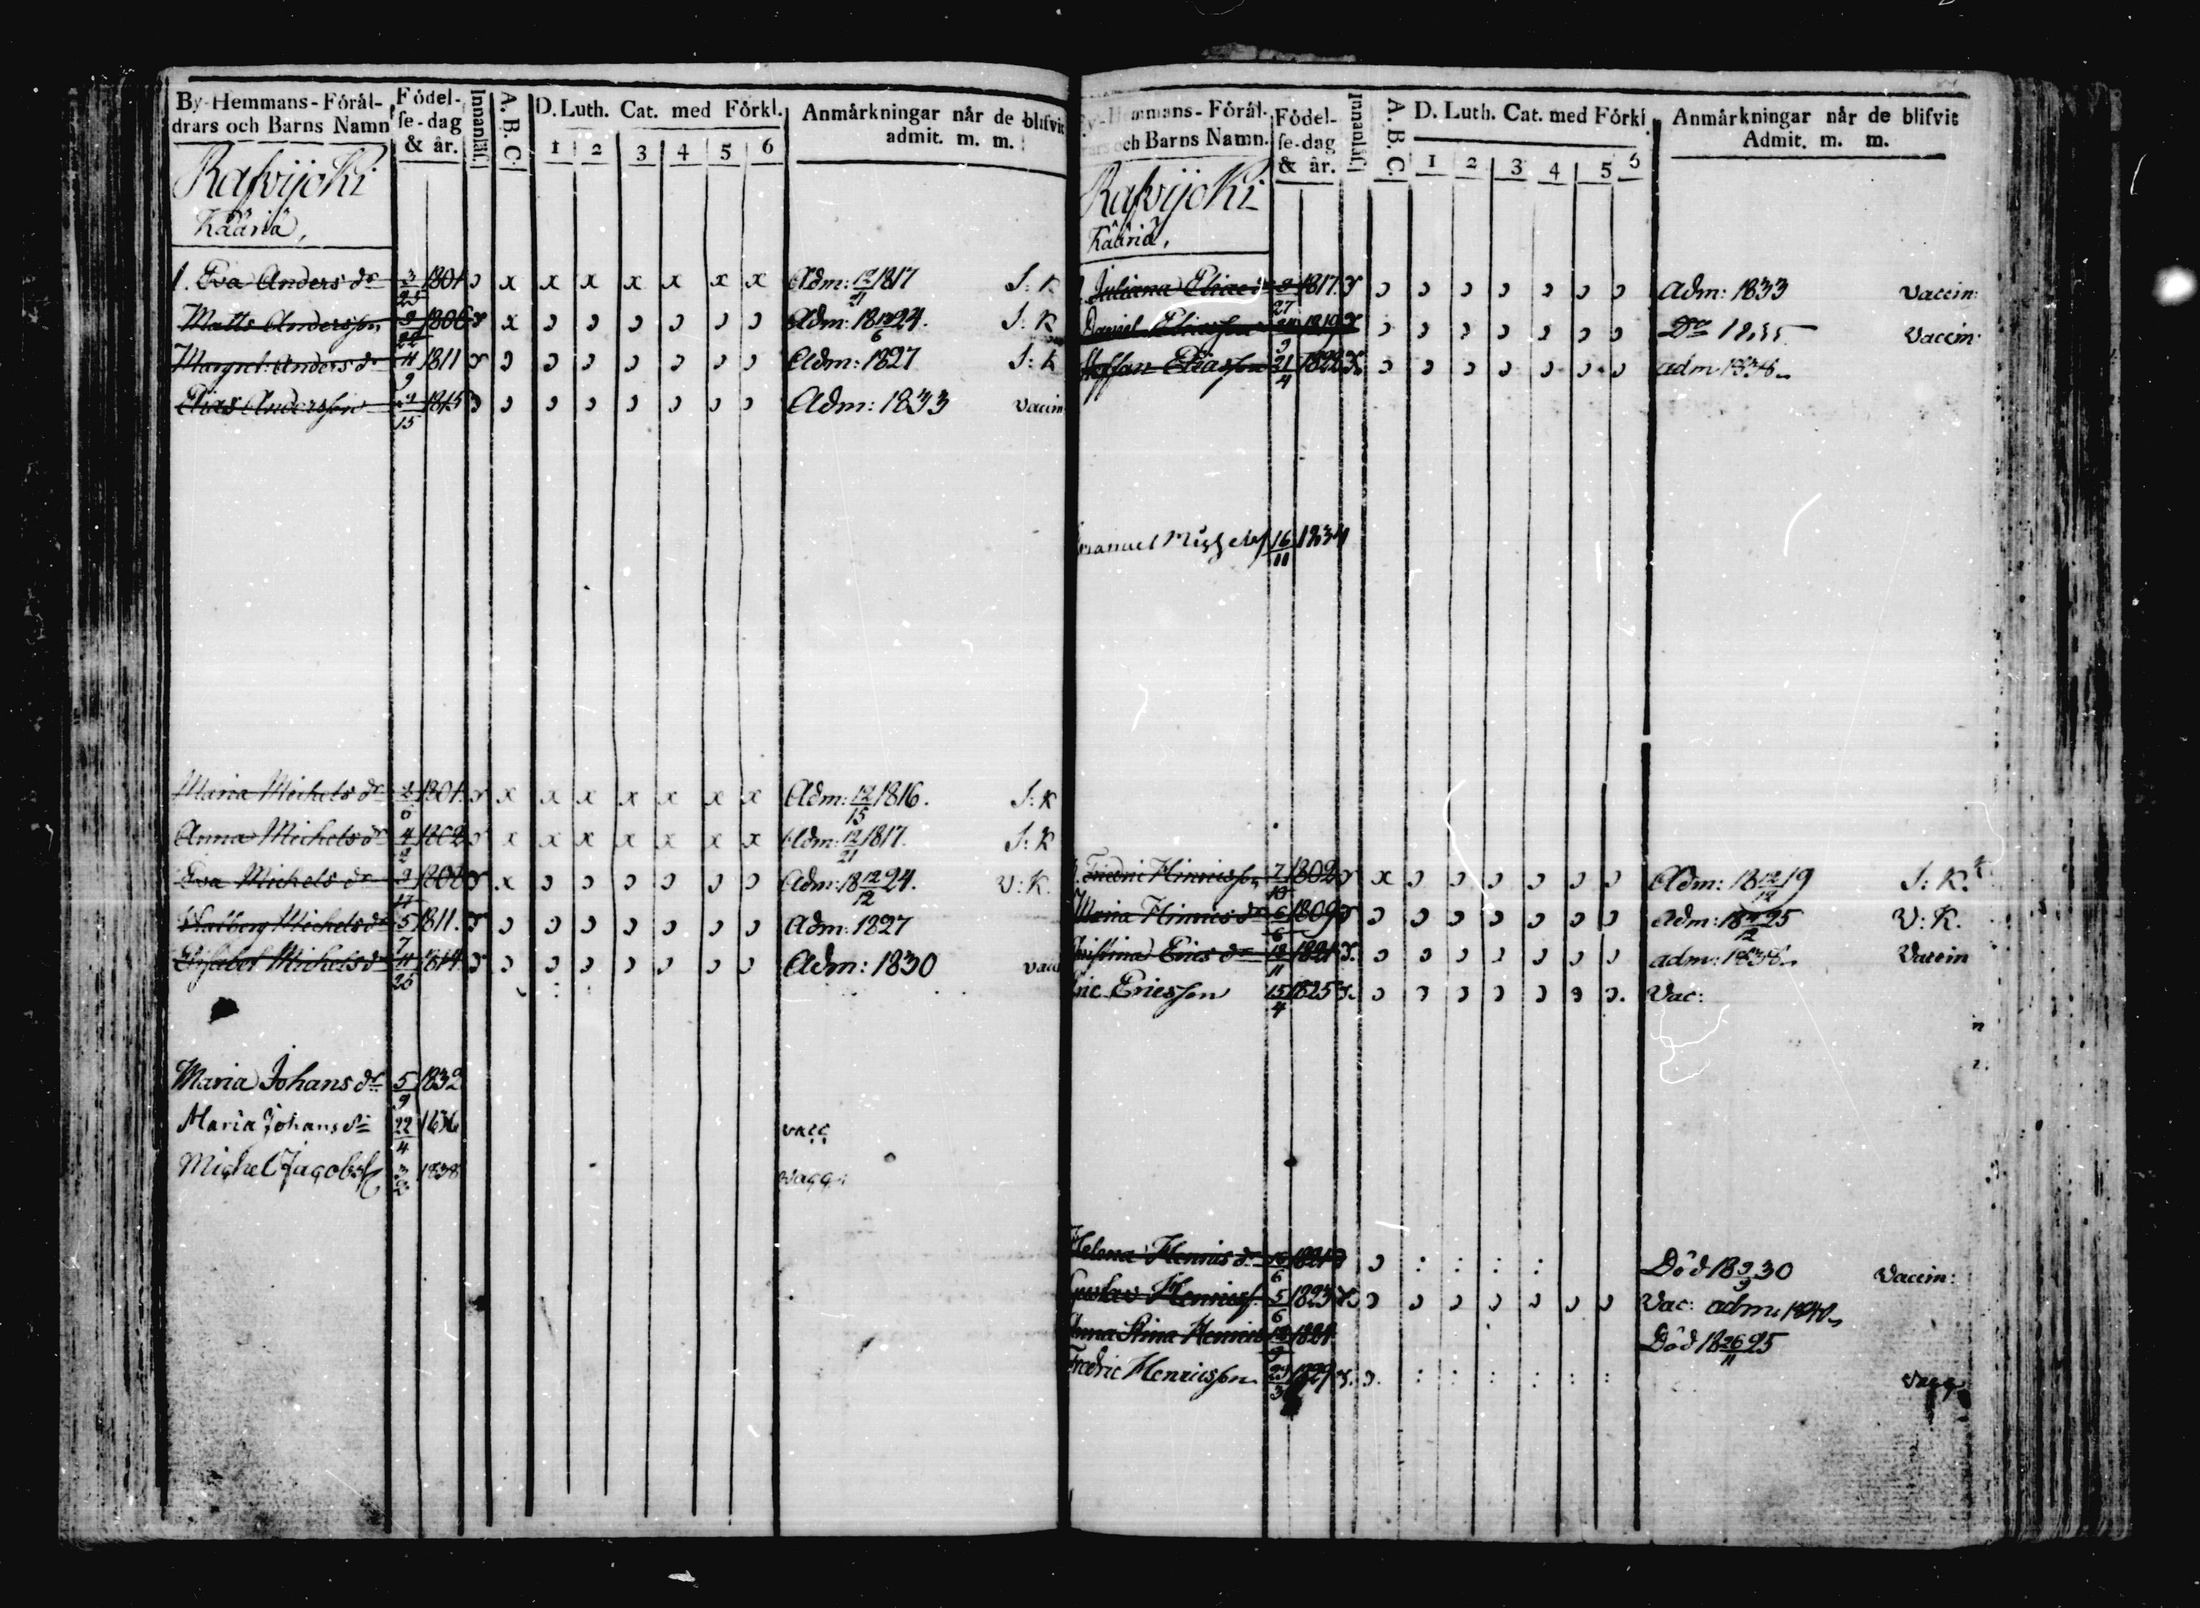 By-Hemmans-Förål-
drars och Barns Namn
Födel-
se-dag
& år.
Innanläs.
A. B. C.
D. Luth. Cat. med Förkl.
1 2 3 4 5 6
Anmårkningar når de blifvit
admit. m. m.
Rafvijoki
Kååriå,
1. Eva Andersdr 3/25 1801 x x x x x x x Adm: 12/21 1817 S: K
Matts Andersson 9/22 1806 x Adm: 18 12/6 24. S: K
Margret: Andersdr 11/9 1811 Adm: 1827 S: K
Elias Andersson 9/15 1815 Adm: 1833 vaccin
Maria Michelsdr 2/6 1801 x x x x x x x Adm: 12/15 1816. S: K
Anna Michelsdr 4/2 1802 x x x x x x x Adm: 12/21 1817. S: K
Eva Michelsdr 1808 x Adm: 18 12/12 24. V: K.
Walborg Michelsdr 5/7 1811. Adm: 1827
Elisabet Michelsdr 11/26 1814 Adm: 1830 vacc
Maria Johansdr 5/9 1832
Maria Johansdr 22/4 1836 vacc
Michel Jacobss 3/2 1838 vacc:
By-Hemmans-Förål-
drars och Barns Namn.
Födel-
se-dag
& år.
Innanläs.
A. B. C.
D. Luth. Cat. med Förkl
1 2 3 4 5 6
Anmårkningar når de blifvit
Admit. m. m.
Rafvijoki
Kååriå,
Juliana Eliaedr 9/27 1817. Adm: 1833 vaccin:
Daniel Eliasson 1819 Do 1835 vaccin:
Steffan Eliasson 21/4 1822 adm 1838
Emanuel Michelss 16/11 1834
Fredric Hinricsson 7/10 1802 x Adm: 18 12/12 19 S: K.
Maria Hinricsdr 6/6 1809 Adm: 18 12/12 25 V: K.
Christina Ericsdr 12/11 1821 adm: 1838 Vaccin
Eric Ericsson 15/4 1825 Vac:
Helena Henricsdr 1821 Död 18 9/9 30 Vaccin:
Gustav Henricss. 5/6 1823 Vac: adm: 1840
Anna Stina Henrics 1824 Död 18 26/11 25
Fredric Henricsson 29/3 1827 vacc